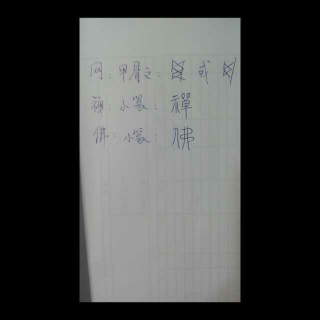 网：甲骨文：或
禅：小篆：禪
佛：小篆：佛